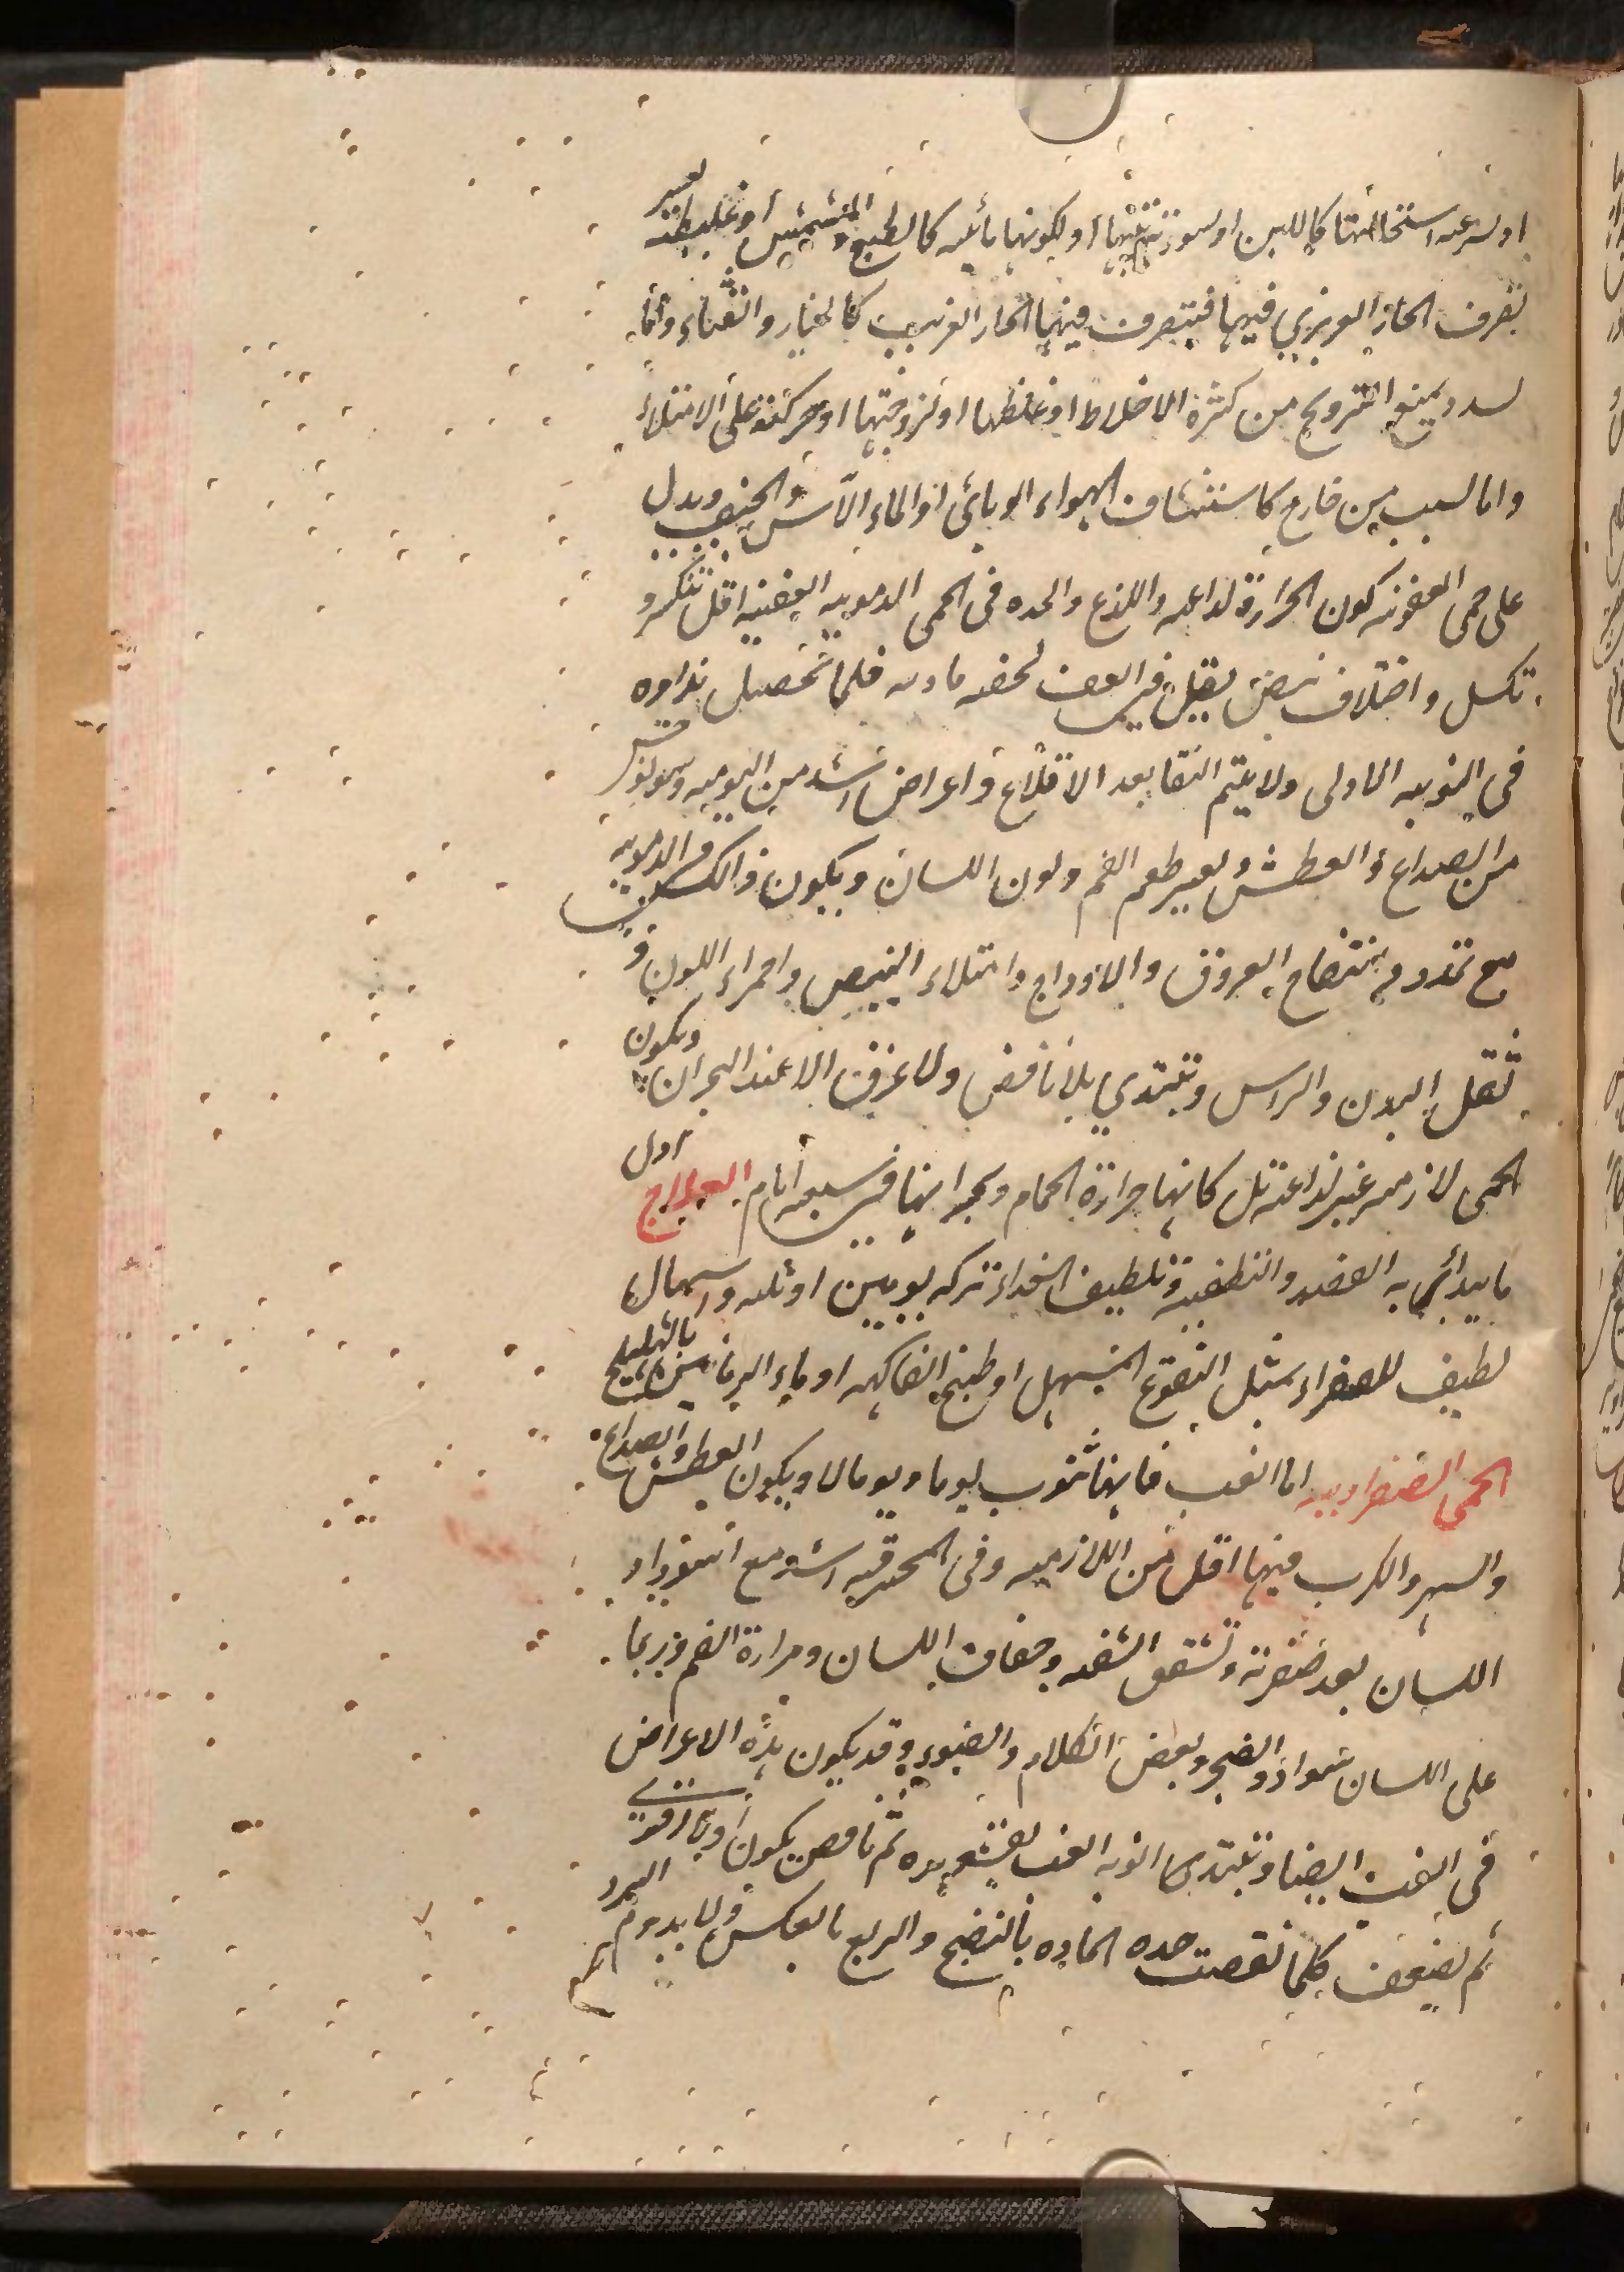 او لسرعه استحالتها كاللبن او لسوء ترتيبها او لكونها مائيه كالبطيخ والمشمش او غليظه تعسر
تصرف الحار الغريزي فيها فيتصرف فيها الحار الغريب كالخيار والقثاء واما
لسدد يمنع الترويح من كثرة الاخلاط او غلظها او لزوجتها او حركته على الامتلاء
واما لسبب من خارج كاستنشاق الهواء الوبائى او الماء الآسن والجيف ويدل
على حمى العفونه كون الحرارة لذاعه واللذع والحده فى الحمى الدمويه العفنيه اقل تكسر و
تكسل واختلاف نبض يقل فى الغب لخفه مادته فلما تحصل نداوه
فى النوبه الاولى ولا يتم النقا بعد الاقلاع واعراض اشد من اليوميه
من الصداع والعطش وتغير طعم الفم ولون اللسان ويكون ذالك فى الدمويه
مع تمدد وانتفاخ العروق والاوداج وامتلاء النبض واحمراء اللون و
ثقل البدن والراس وتبتدي بلا نافض ولا عرق الا عند البحران ويكون
الحمى لازمه غير لذاعه بل كانها حرارة الحمام وبحرانها فى سبعه ايام العلاج اول
ما يبدأ به الفصد والتطفيه وتلطيف الغداء تركه يومين او ثلثه واسهال
لطيف للصفراء بمثل النقوع المسهل او طبيخ الفاكهه او ماء الرمانين بالهليلج
الحمى الصفراويه اما الغب فانها تنوب يوما ويوما لا ويكون العطش والصداع
والسهر والكرب فيها اقل من اللازمه وفى المحرقه اشد مع اسوداد
اللسان بعد صفرته وتشقق الشفه وجفاف اللسان ومرارة الفم وربما
على اللسان سواد والضجر وبغض الكلام والضوء وقد يكون هذه الاعراض
فى الغب ايضا وتبتدى النوبه الغب بقشعريره ثم نافض يكون اولا قوى
ثم يضعف كلما نقصت حده الماده بالنضج والربع بالعكس ولا يدوم البرد